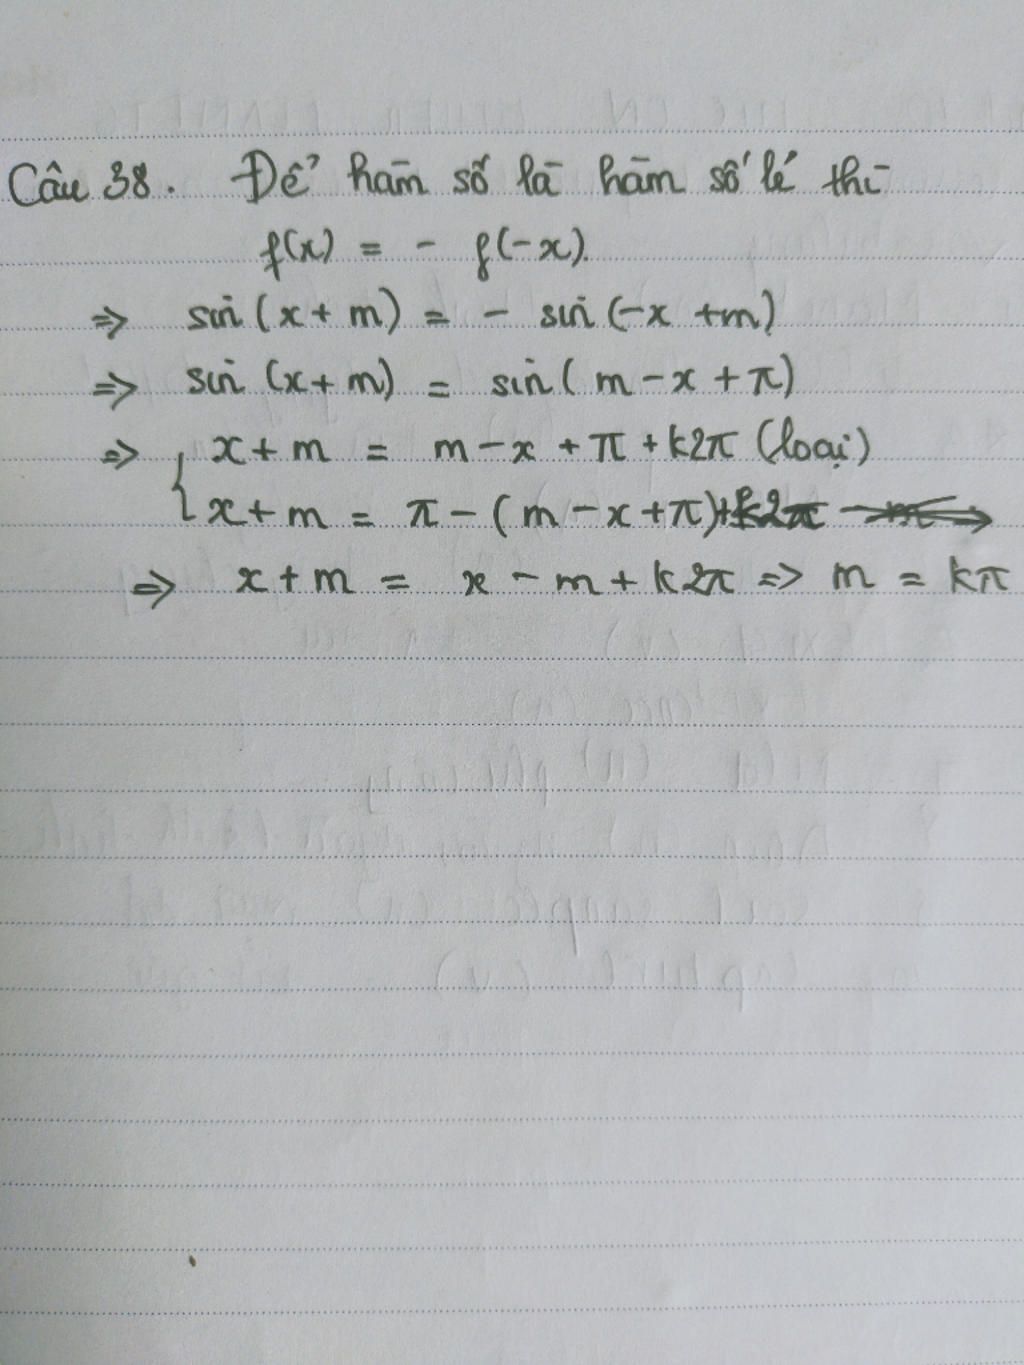 Câu 38. Để hàm số là hàm số lẻ thì
f(x) = - f(-x).
=> sin(x+m) = - sin(-x+m)
=> sin(x+m) = sin(m-x+π)
=> { x+m = m-x+π+k2π (loại)
x+m = π-(m-x+π)+k2π
=> x+m = x-m+k2π => m = kπ